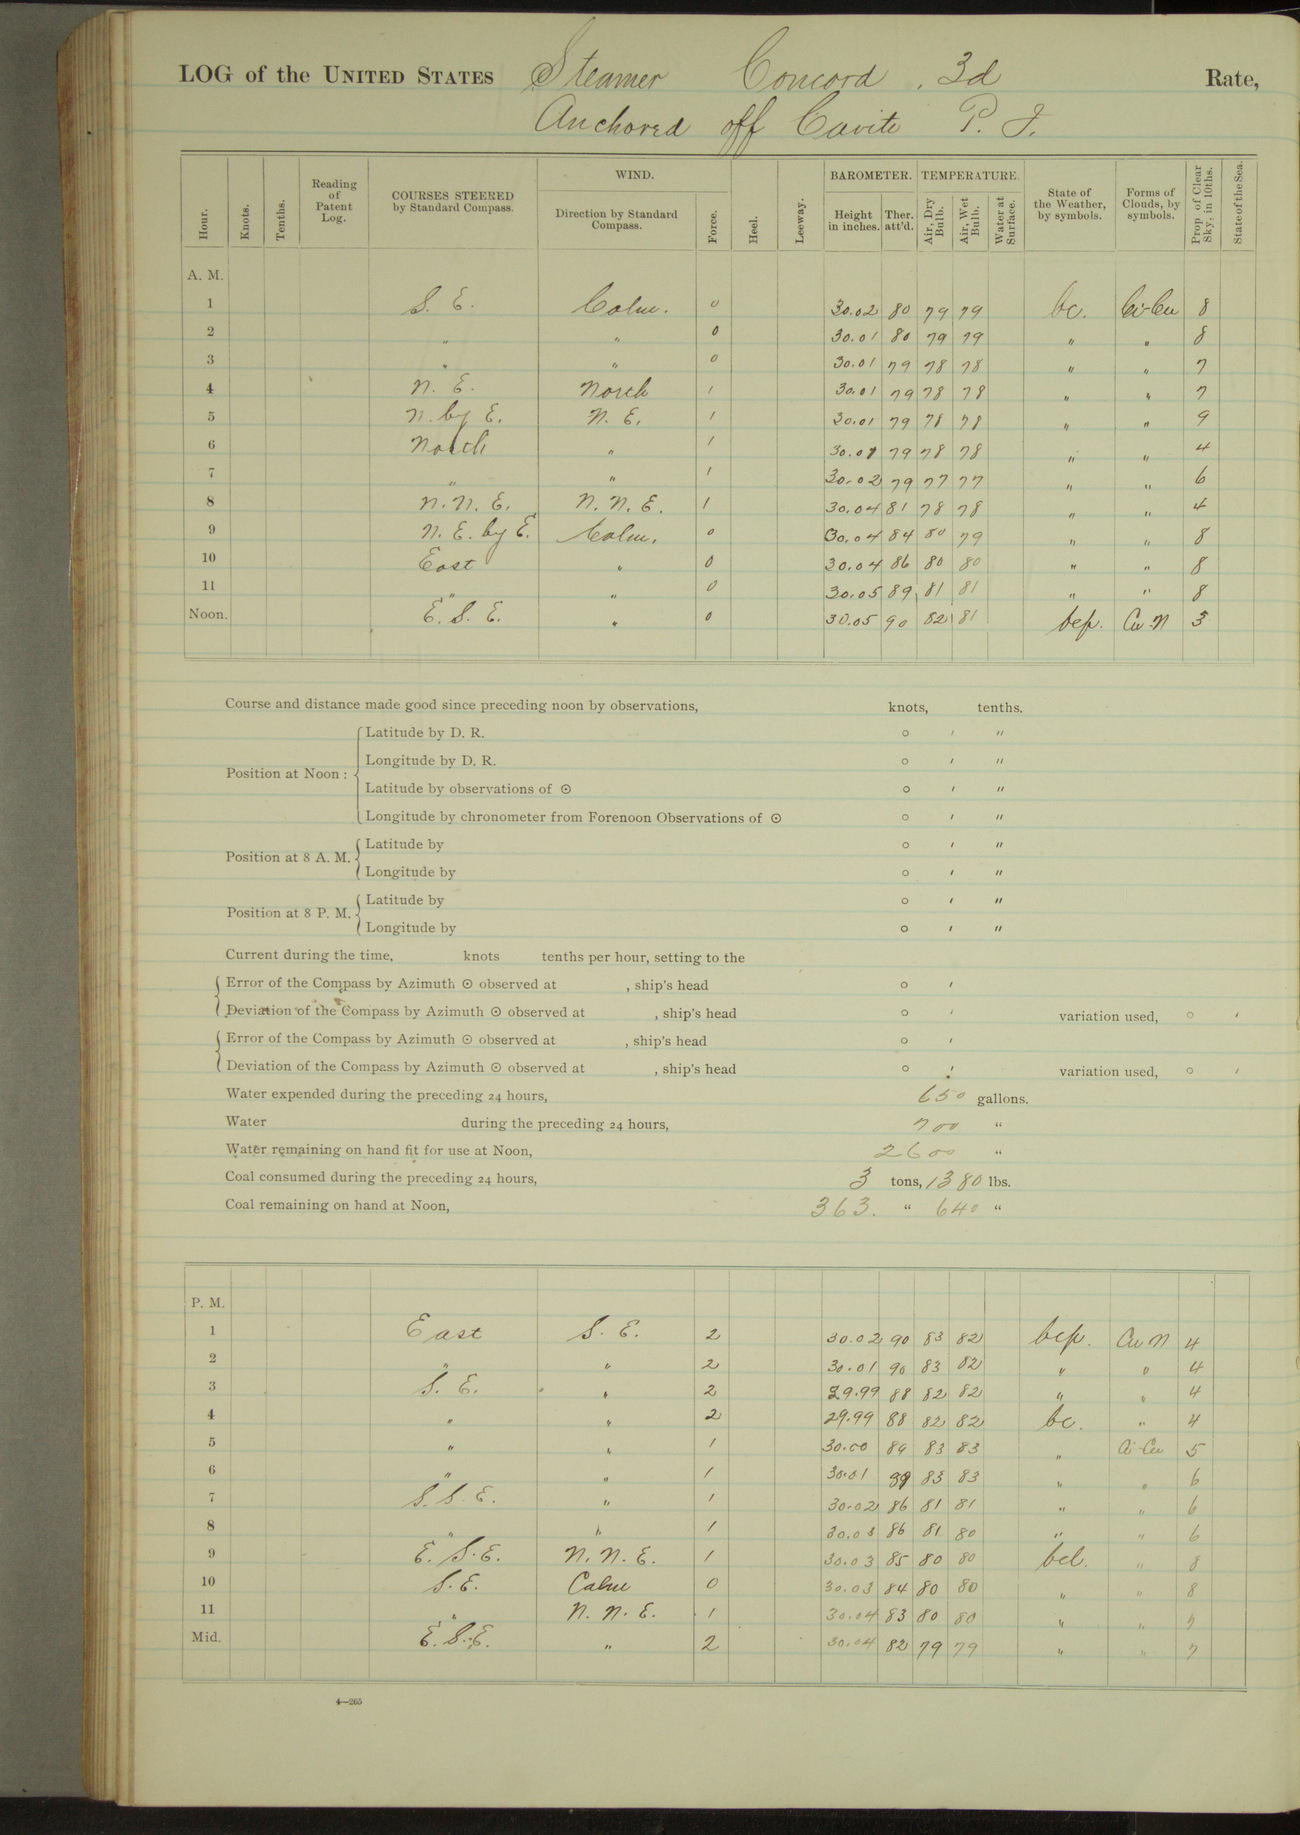 LOG of the UNITED STATES Steamer Concord, 3d Rate,
Anchored off Cavite P. I.
Hour. Knots. Tenths. Reading of Patent Log. COURSES STEERED by Standard Compass. WIND. Direction by Standard Compass. Force. Heel. Leeway. BAROMETER. Height in inches. Ther. att'd. TEMPERATURE. Air, Dry Bulb. Air, Wet Bulb. Water at Surface. State of the Weather, by symbols. Forms of Clouds, by symbols. Prop. of Clear Sky, in 10ths. State of the Sea.
A. M.
1 S. E. Calm. 0 30.02 80 79 79 bc. Ci-Cu 8
2 " " 0 30.01 80 79 79 " " 8
3 " " 0 30.01 79 78 78 " " 7
4 N. E. North 1 30.01 79 78 78 " " 7
5 N. by E. N. E. 1 30.01 79 78 78 " " 9
6 North " 1 30.01 79 78 78 " " 4
7 " " 1 30.02 79 77 77 " " 6
8 N. N. E. N. N. E. 1 30.04 81 78 78 " " 4
9 N. E. by E. Calm. 0 30.04 84 80 79 " " 8
10 East " 0 30.04 86 80 80 " " 8
11 " " 0 30.05 89 81 81 " " 8
Noon. E. S. E. " 0 30.05 90 82 81 bcp. Cu-N 5
Course and distance made good since preceding noon by observations, knots, tenths.
Position at Noon: Latitude by D. R. ° ′ ″
Longitude by D. R. ° ′ ″
Latitude by observations of ☉ ° ′ ″
Longitude by chronometer from Forenoon Observations of ☉ ° ′ ″
Position at 8 A. M. Latitude by ° ′ ″
Longitude by ° ′ ″
Position at 8 P. M. Latitude by ° ′ ″
Longitude by ° ′ ″
Current during the time, knots tenths per hour, setting to the
Error of the Compass by Azimuth ☉ observed at , ship's head ° ′
Deviation of the Compass by Azimuth ☉ observed at , ship's head ° ′ variation used, ° ′
Error of the Compass by Azimuth ☉ observed at , ship's head ° ′
Deviation of the Compass by Azimuth ☉ observed at , ship's head ° ′ variation used, ° ′
Water expended during the preceding 24 hours, 650 gallons.
Water during the preceding 24 hours, 700 "
Water remaining on hand fit for use at Noon, 2600 "
Coal consumed during the preceding 24 hours, 3 tons, 1380 lbs.
Coal remaining on hand at Noon, 363. " 640 "
P. M.
1 East S. E. 2 30.02 90 83 82 bcp. Cu N 4
2 " " 2 30.01 90 83 82 " " 4
3 S. E. " 2 29.99 88 82 82 " " 4
4 " " 2 29.99 88 82 82 bc. " 4
5 " " 1 30.00 89 83 83 " Ci-Cu 5
6 " " 1 30.01 89 83 83 " " 6
7 S. S. E. " 1 30.02 86 81 81 " " 6
8 " " 1 30.03 86 81 80 " " 6
9 E. S. E. N. N. E. 1 30.03 85 80 80 bcl. " 8
10 S. E. Calm 0 30.03 84 80 80 " " 8
11 " N. N. E. 1 30.04 83 80 80 " " 7
Mid. E. S. E. " 2 30.04 82 79 79 " " 7
4—265